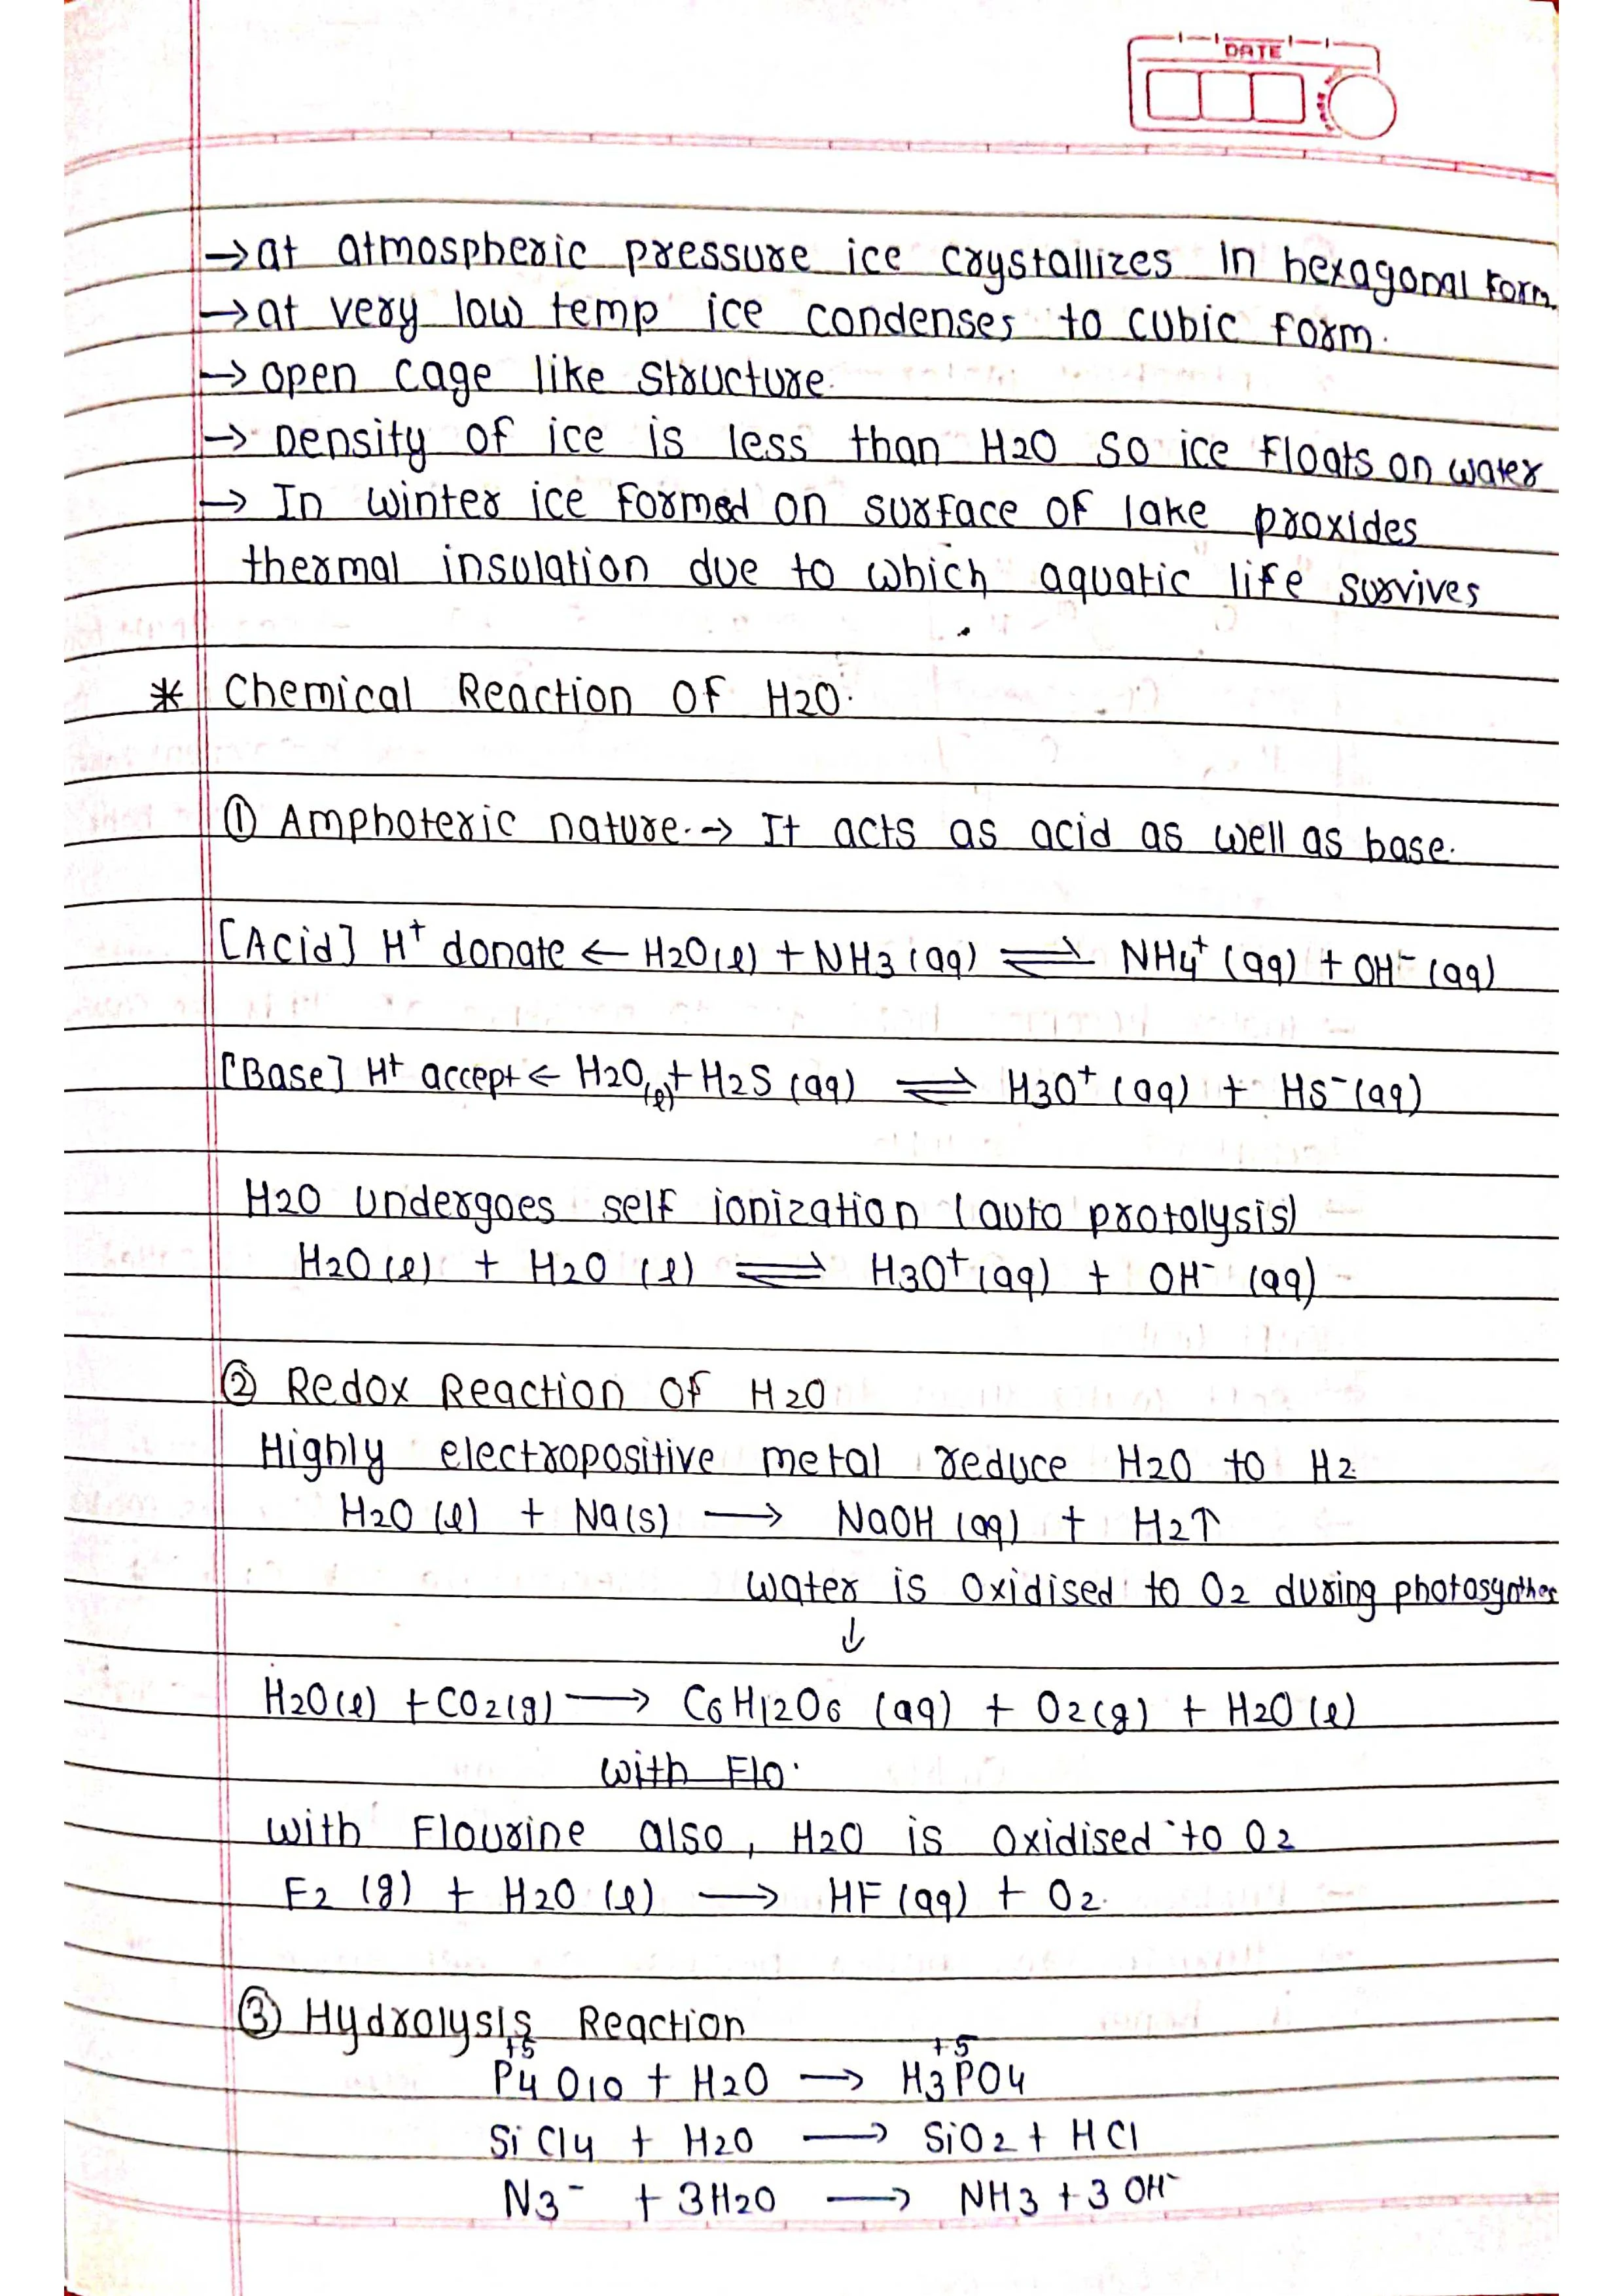 DATE
→ at atmospheric pressure ice crystallizes in hexagonal form.
→ at very low temp ice condenses to cubic form.
→ open cage like structure.
→ Density of ice is less than H2O so ice floats on water
→ In winter ice formed on surface of lake proxides
thermal insulation due to which aquatic life survives
* Chemical Reaction of H2O.
① Amphoteric nature. → It acts as acid as well as base.
[Acid] H⁺ donate ← H2O(l) + NH3(aq) ⇌ NH4⁺(aq) + OH⁻(aq)
[Base] H⁺ accept ← H2O(l) + H2S(aq) ⇌ H3O⁺(aq) + HS⁻(aq)
H2O undergoes self ionization (auto protolysis)
H2O(l) + H2O(l) ⇌ H3O⁺(aq) + OH⁻(aq)
② Redox Reaction of H2O
Highly electropositive metal reduce H2O to H2
H2O(l) + Na(s) → NaOH(aq) + H2↑
water is oxidised to O2 during photosynthes
↓
H2O(l) + CO2(g) → C6H12O6(aq) + O2(g) + H2O(l)
with Flo.
with Flourine also, H2O is oxidised to O2
F2(g) + H2O(l) → HF(aq) + O2.
③ Hydrolysis Reaction
+5 +5
P4O10 + H2O → H3PO4
SiCl4 + H2O → SiO2 + HCl
N3⁻ + 3H2O → NH3 + 3OH⁻